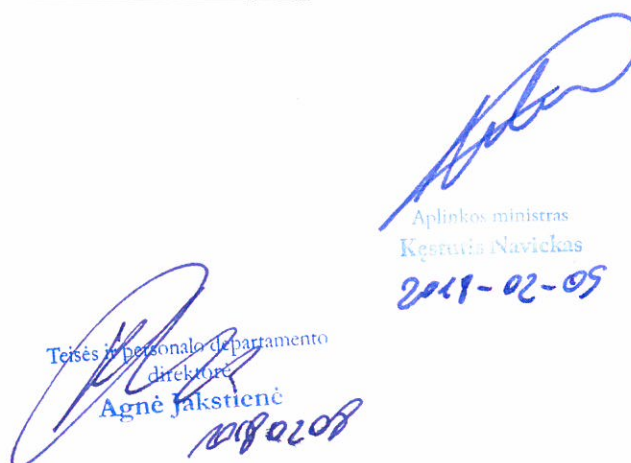 Aplinkos ministras
Kęstutis Navickas
2018-02-09
Teisės ir personalo departamento
direktorė
Agnė Jakstienė
20180208